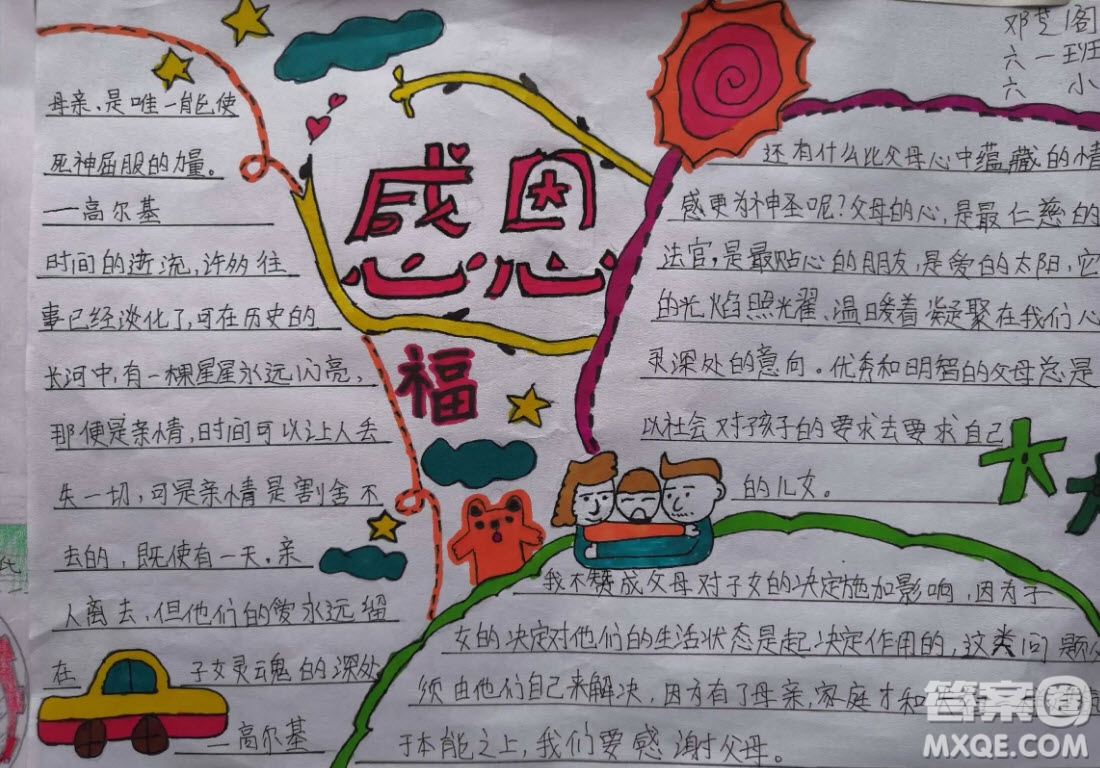 邓芝阁
六一班
六 小
感恩
心心
福
母亲、是唯一能使
死神屈服的力量。
—高尔基
时间的逝流,许多往
事已经淡化了,可在历史的
长河中,有一棵星星永远闪亮,
那便是亲情,时间可以让人丢
失一切,可是亲情是割舍不
去的,既使有一天,亲
人离去,但他们的爱永远留
在 子女灵魂的深处
—高尔基
还有什么比父母心中蕴藏的情
感更为神圣呢?父母的心,是最仁慈的
法官,是最贴心的朋友,是爱的太阳,它
的光焰照光耀、温暖着凝聚在我们心
灵深处的意向。优秀和明智的父母总是
以社会对孩子的要求去要求自己
的儿女。
我不赞成父母对子女的决定施加影响,因为子
女的决定对他们的生活状态是起决定作用的,这类问题必
须由他们自己来解决,因为有了母亲,家庭才和
于本能之上,我们要感谢父母。
答案圈
MXQE.COM